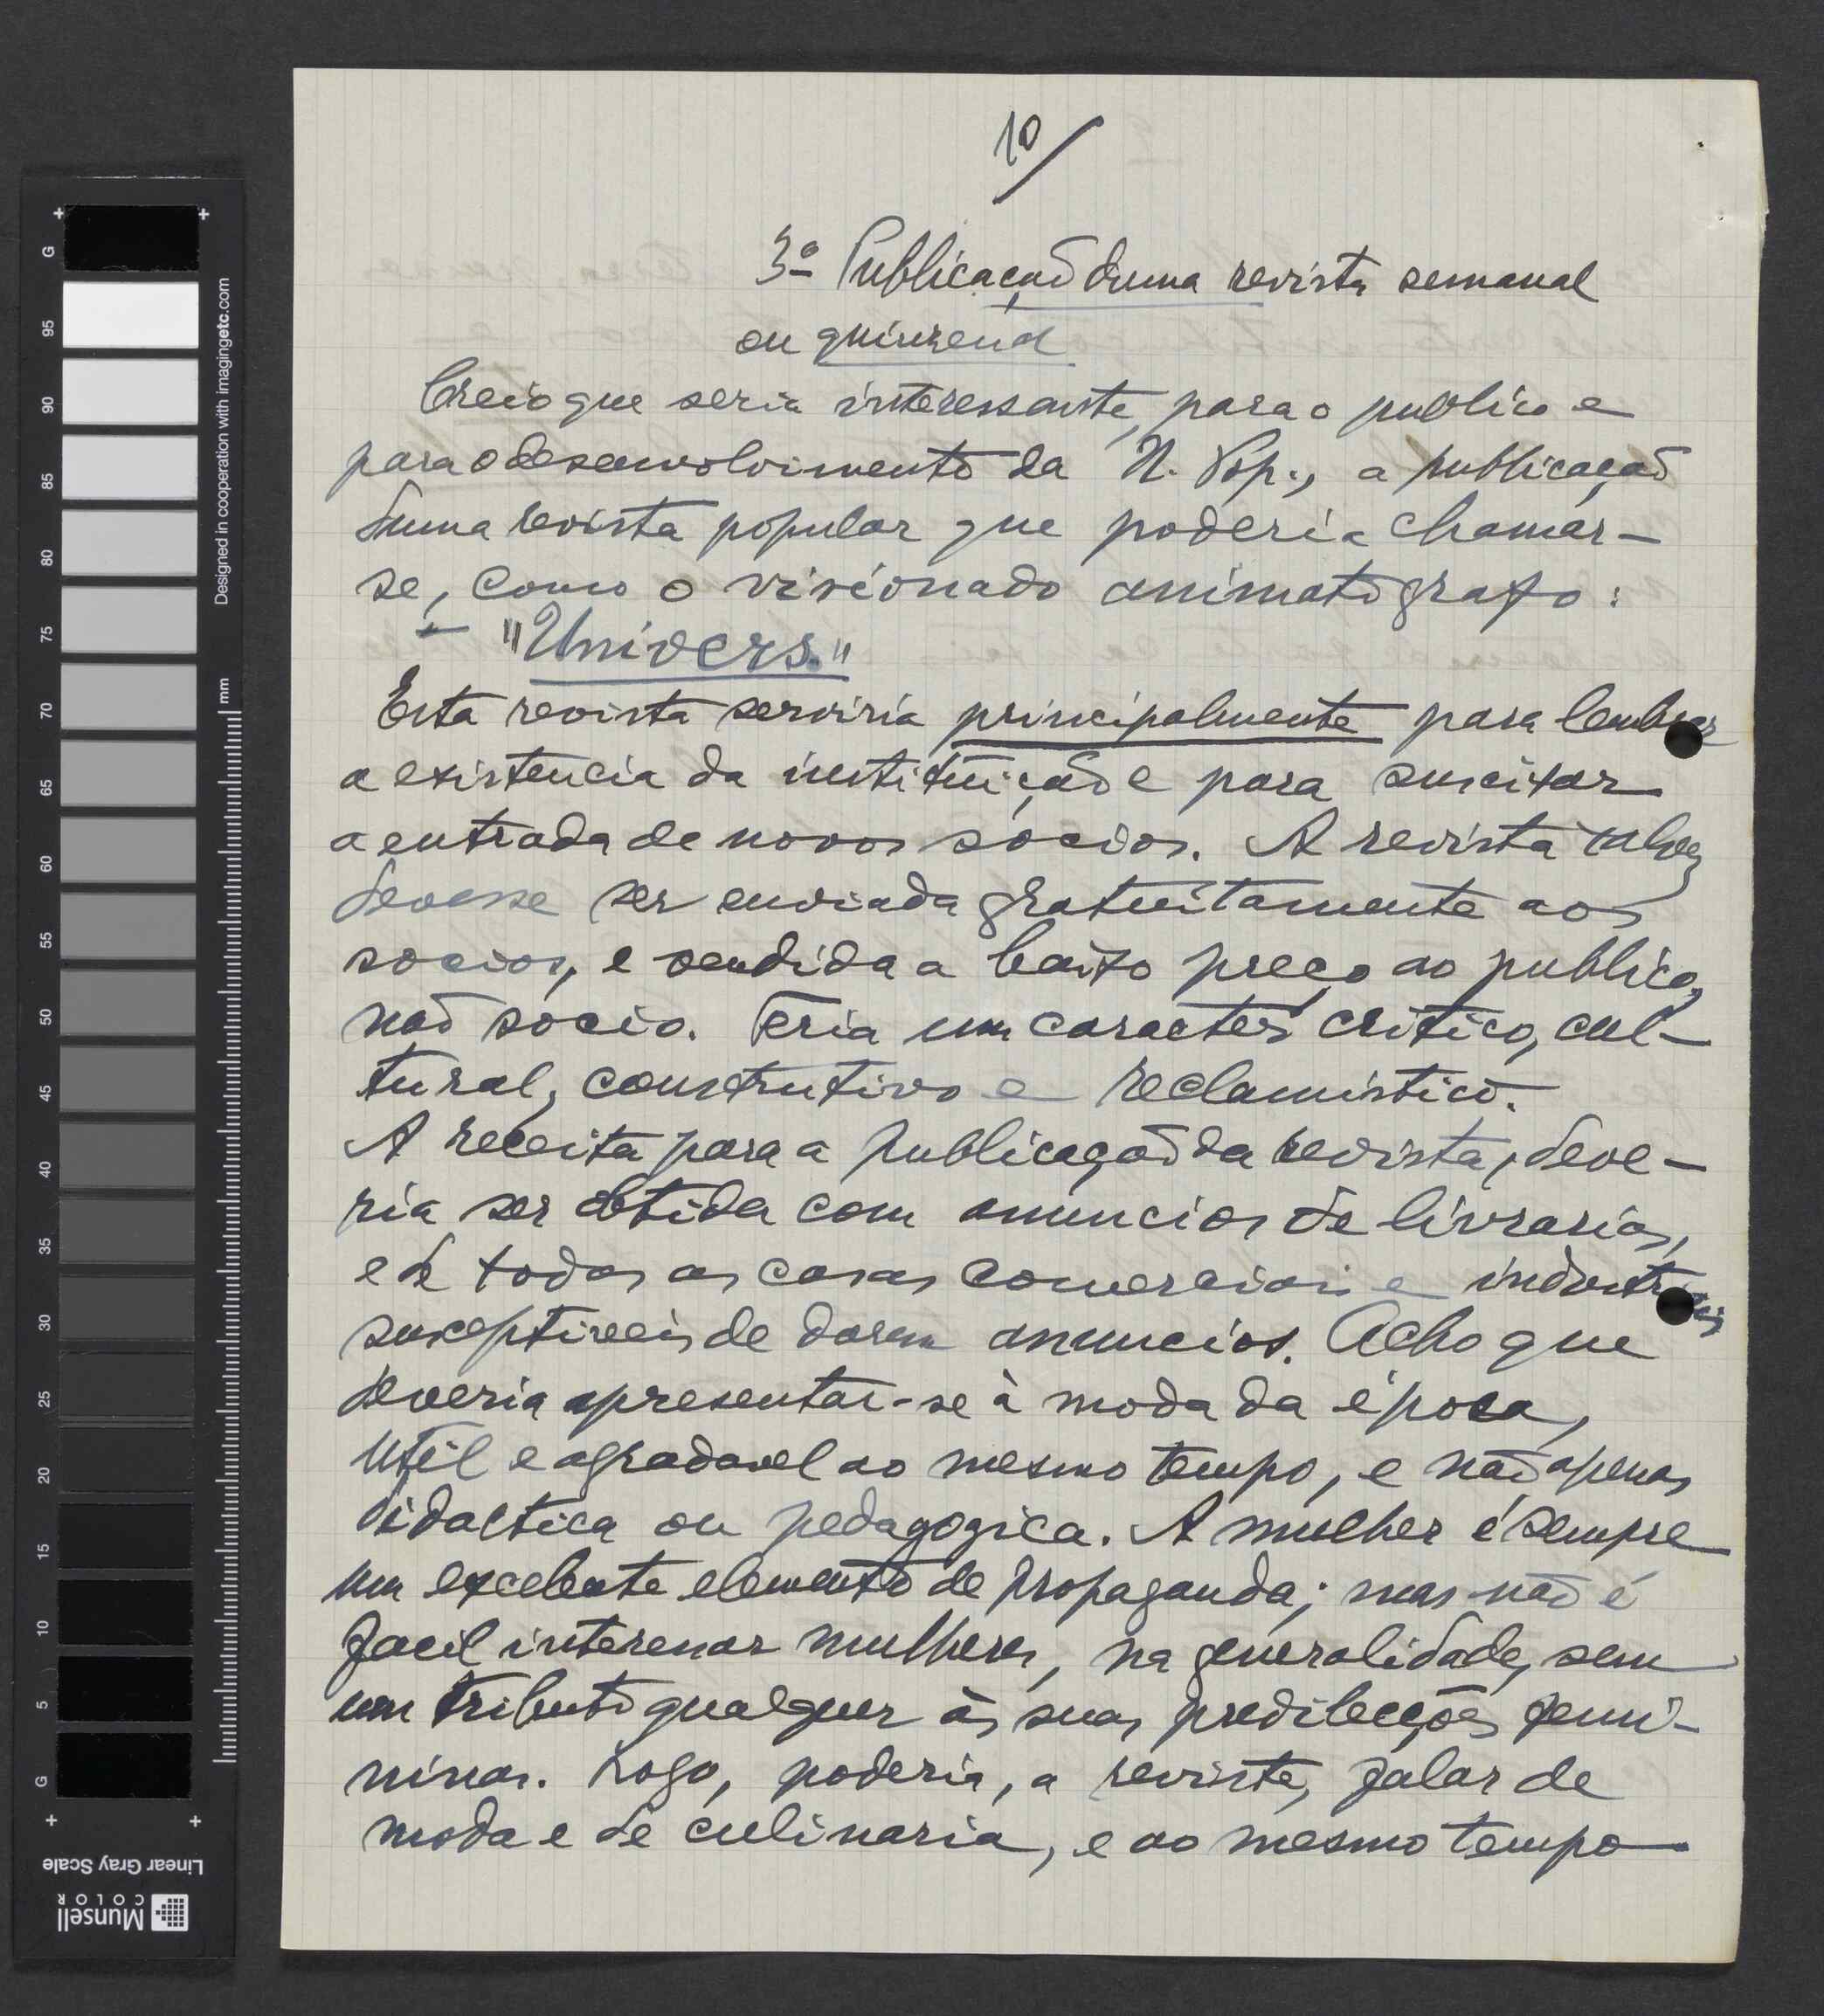 10/
3º Publicação duma revista semanal
ou quinzenal
Creio que seria interessante, para o publico e
para o desenvolvimento da U. Pop., a publicação
duma revista popular que poderia chamar-
se, como o visionado animatografo:
— "Univers."
Esta revista serviria principalmente para lembrar
a existencia da instituição e para suscitar
a entrada de novos socios. A revista talvez
devesse ser enviada gratuitamente aos
socios, e vendida a baixo preço ao publico,
não socio. Teria um caracter critico, cul-
tural, construtivo e reclamistico.
A receita para a publicação da revista, deve-
ria ser obtida com anuncios de livrarias,
e de todas as casas comerciais e industriais
susceptiveis de darem anuncios. Acho que
deveria apresentar-se à moda da época,
util e agradavel ao mesmo tempo, e não apenas
didactica ou pedagogica. A mulher é sempre
um excelente elemento de propaganda; mas não é
facil interessar mulheres, na generalidade, sem
um tributo qualquer às suas predilecções femi-
ninas. Logo, poderia, a revista, falar de
moda e de culinaria, e ao mesmo tempo
G
95
90
85
80
75
70
65
60
55
50
45
40
35
30
25
20
15
10
5
G
mm
Designed in cooperation with imagingetc.com
Linear Gray Scale
Munsell
COLOR